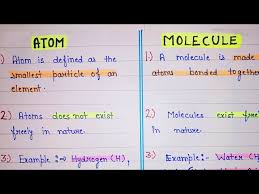 ATOM
1.) Atom is defined as the
smallest particle of an
element.
2.) Atoms does not exist
freely in nature.
3) Example :⇒ Hydrogen (H),
MOLECULE
1.) A molecule is made
atoms bonded together
2.) Molecules exist free
in nature.
3) Example:- Water (